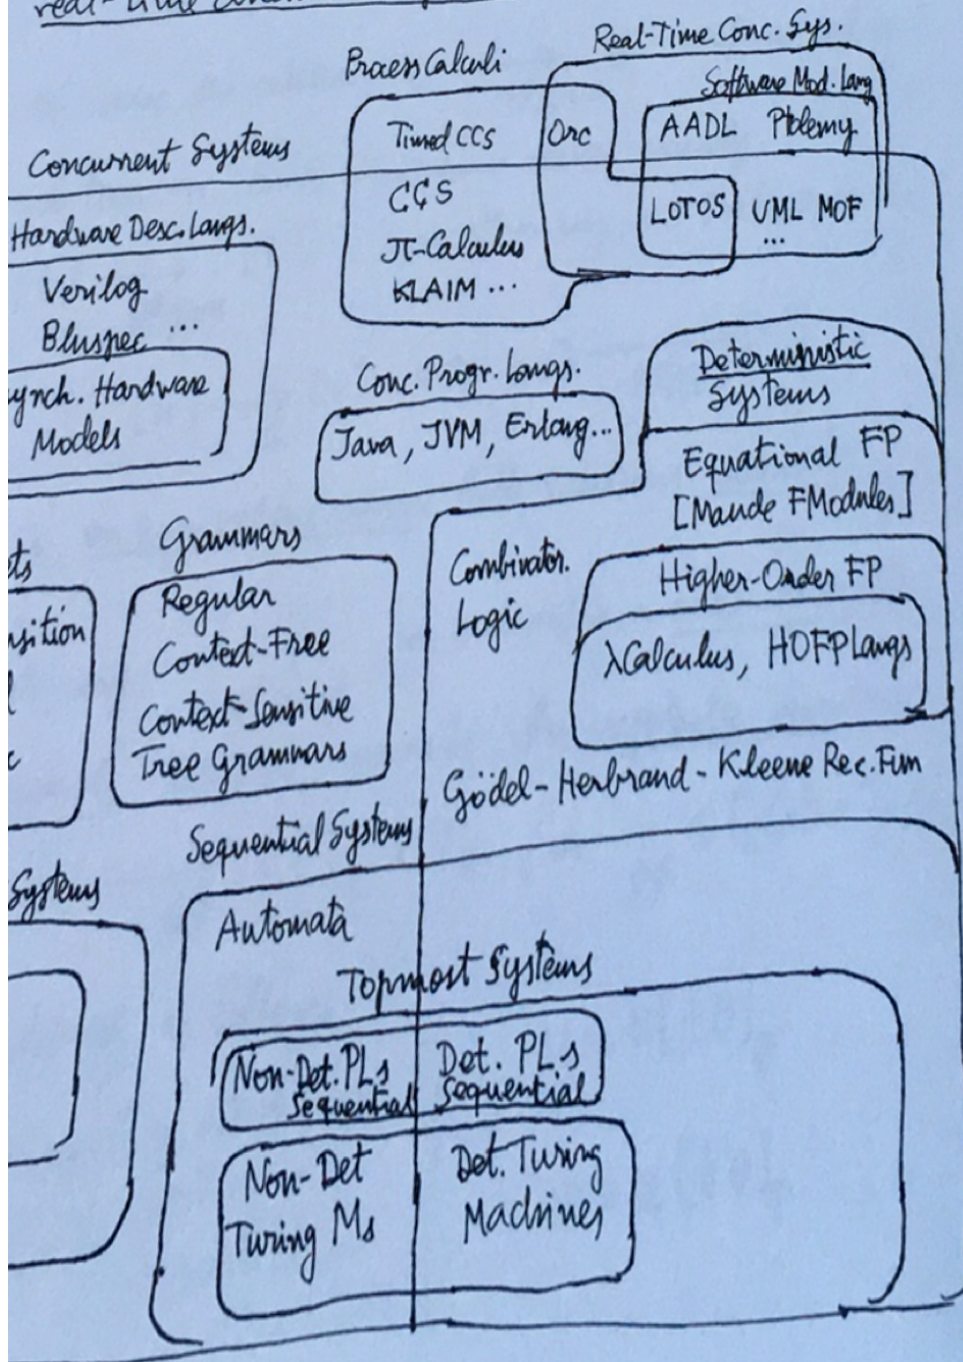 Real-Time Conc. Sys.
Process Calculi
Software Mod. Lang
Timed CCS
Orc
AADL Ptolemy
Concurrent Systems
CCS
LOTOS
UML MOF
...
Hardware Desc. Langs.
π-Calculus
KLAIM ...
Verilog
Bluspec ...
Hardware
Models
Conc. Progr. Langs.
Java, JVM, Erlang...
Deterministic
Systems
Equational FP
[Maude FModules]
Grammars
Regular
Context-Free
Context-Sensitive
Tree Grammars
Combinator.
Logic
Higher-Order FP
λCalculus, HOFPLangs
Gödel-Herbrand-Kleene Rec. Fun
Sequential Systems
Systems
Automata
Topmost Systems
Non-Det. PLs
Sequential
Det. PLs
Sequential
Non-Det
Turing Ms
Det. Turing
Machines